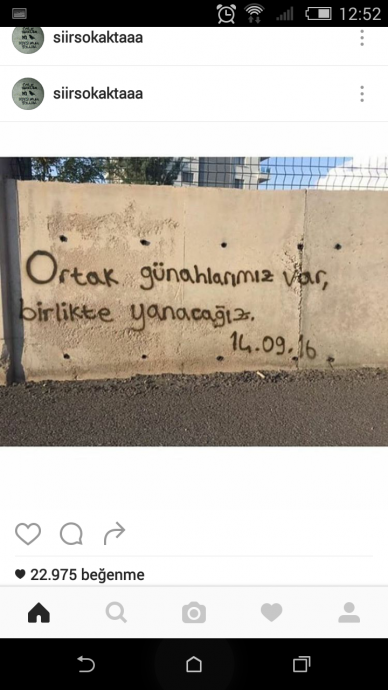 12:52
siirsokaktaaa
siirsokaktaaa
Ortak günahlarımız var,
birlikte yanacağız.
14.09.16
22.975 beğenme